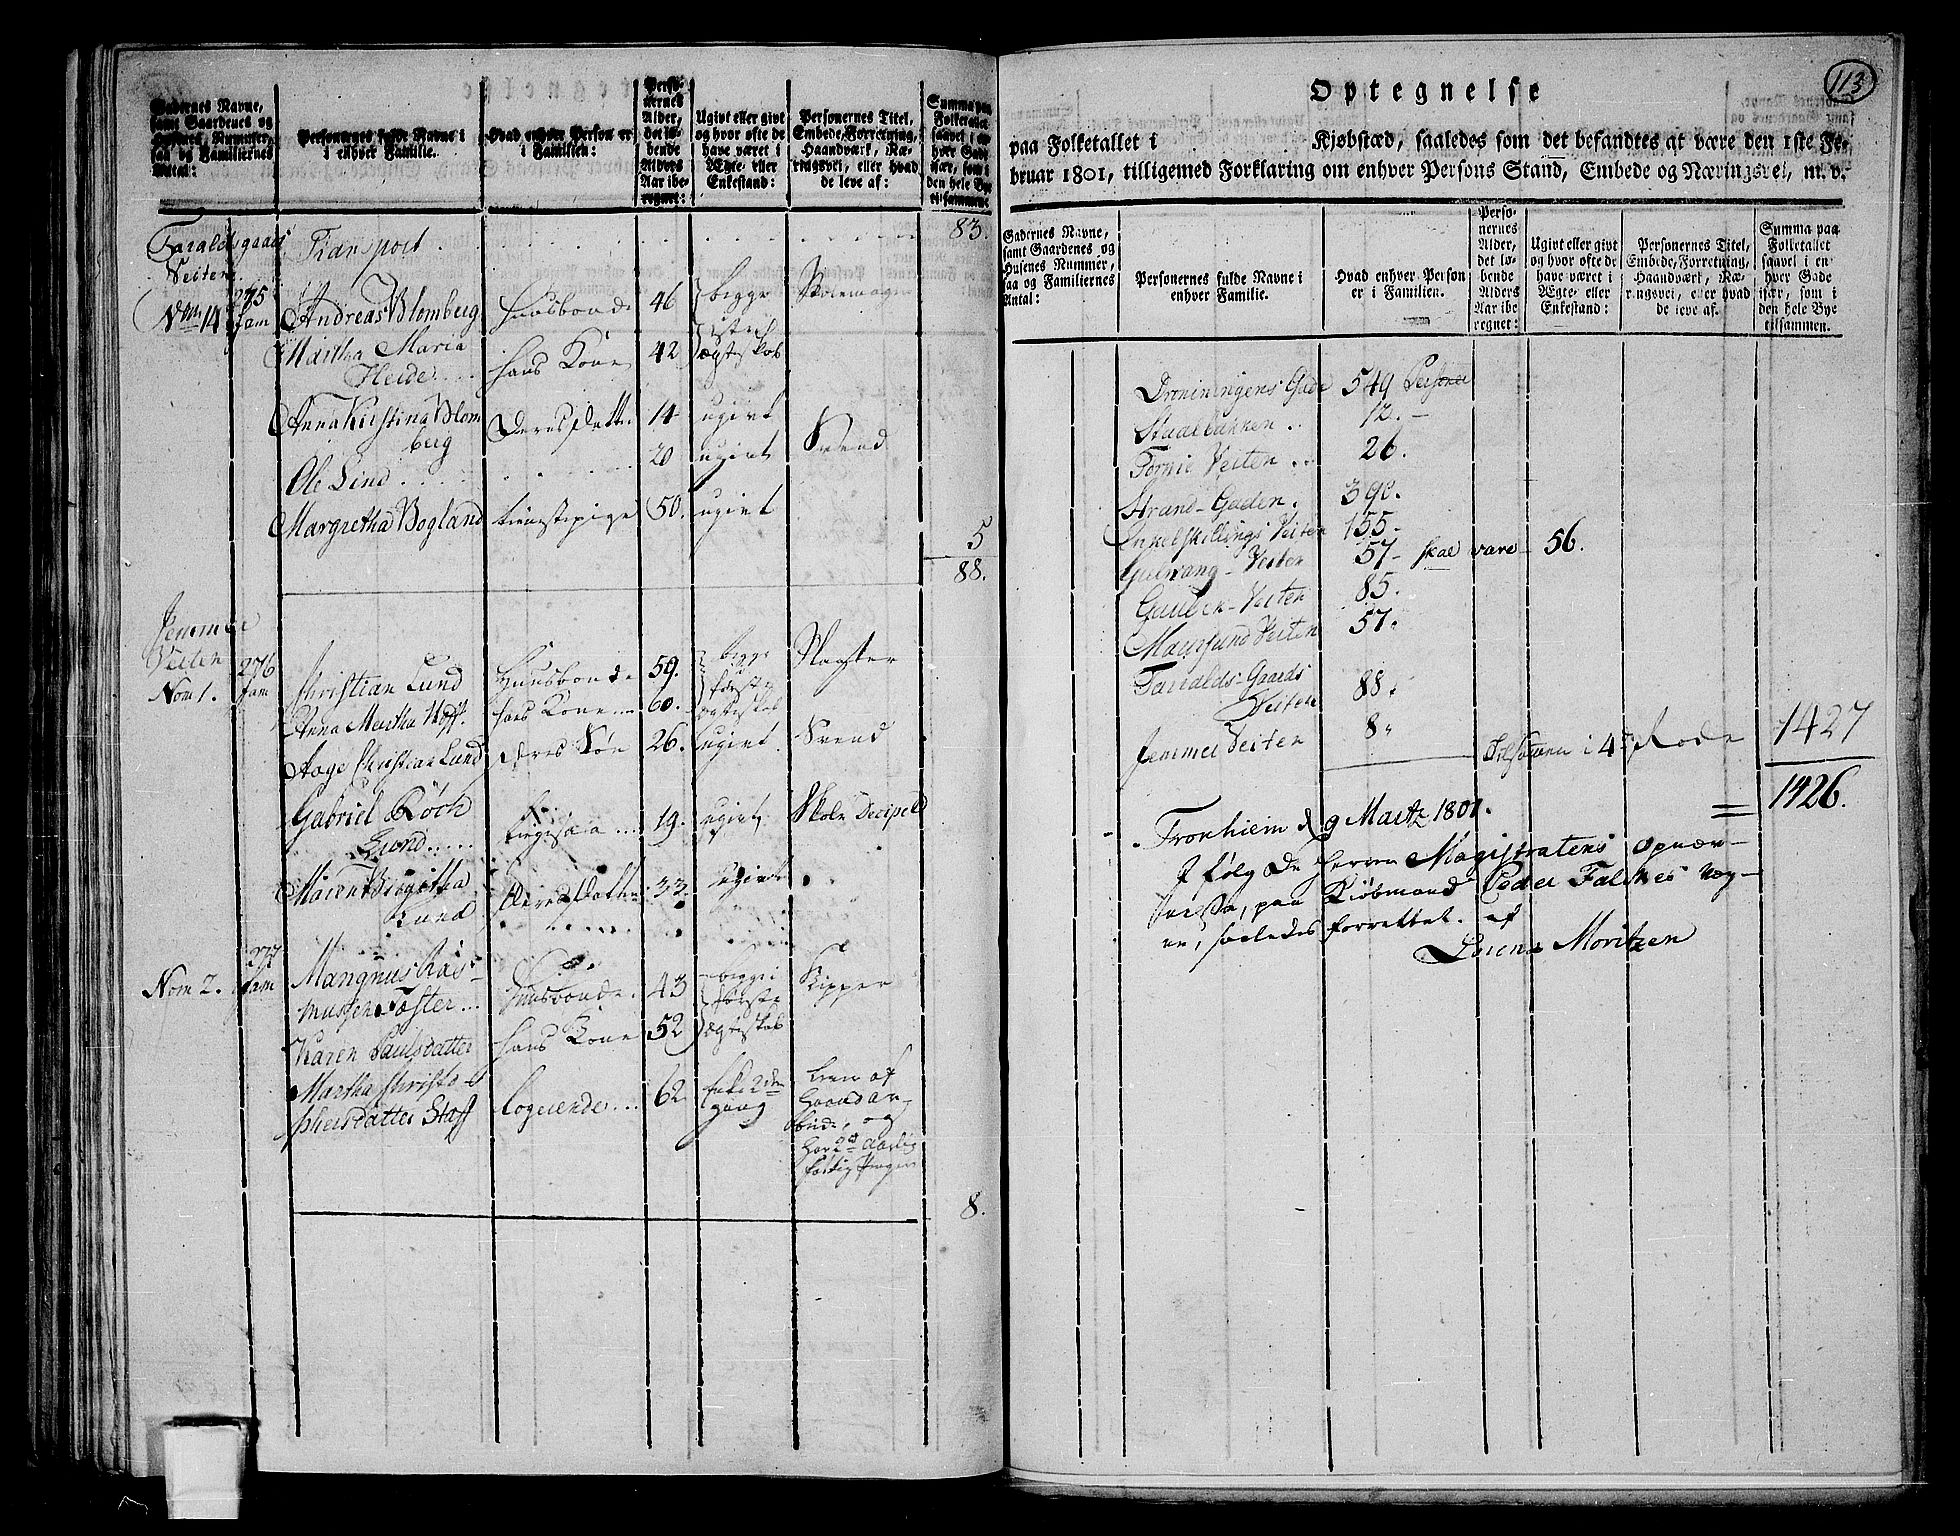 Gadernes Navne,
samt Gaardenes og
Husenes Nummer,
saa og Familiernes
Antal:
Personernes fulde Navne i
enhver Familie.
Hvad enhver Person er
i Familien:
Perso-
nernes
Alder,
det lø-
bende
Alders
Aar ibe-
regnet:
Ugivt eller givt
og hvor ofte de
have været i
Ægte- eller
Enkestand:
Personernes Titel,
Embede, Forretning,
Haandværk, Næ-
ringsvei, eller hvad
de leve af:
Summa paa
Folketallet
saavel i en-
hver Gade
især, som i
den hele Bye
tilsammen.
Taraldsgaards Transport 83.
Veiten
Nom 14 275 fam Andreas Blomberg Huusbonde 46 begge
1ste
Martha Maria hans Kone 42 ægteskab
Heide
Anna Kirstina Blom Deres Datter 14 ugivt
berg
Ole Lind 20 ugivt Svend
Margretha Bogland tienstepige 50. ugivt
5
88.
Jemmer
Veiten 276
Nom 1. fam Christian Lund Huusbonde 59. begge Slagter
første
Anna Martha Hoff. hans Kone 60. ægteskab
Aage Christian Lund deres Søn 26. ugivt. Svend
Gabriel Röch ligesaa 19. ugivt. Skole Decipel
Lund
Maren Birgitha Deres Datter 33. ugivt
Lund
277
Nom 2. fam Mangnus Ras- Huusbonde. 43 begge i Kipper
mussen første
Karen Paulsdatter hans Kone 52 ægteskab
Martha Christo- logerende 62 Enke 2den leve af
phersdatter Staff gang Haandar-
beide, og
har 2rd aarlig
fattig Penger
8.
113
Optegnelse
paa Folketallet i Kjøbstæd, saaledes som det befandtes at være den 1ste Fe-
bruar 1801, tilligemed Forklaring om enhver Persons Stand, Embede og Næringsvei, m. v.
Gadernes Navne,
samt Gaardenes og
Husenes Nummer,
saa og Familiernes
Antal:
Personernes fulde Navne i
enhver Familie.
Hvad enhver Person
er i Familien.
Perso-
nernes
Alder,
det lø-
bende
Alders
Aar ibe-
regnet:
Ugivt eller givt
og hvor ofte de
have været i
Ægte- eller
Enkestand:
Personernes Titel,
Embede, Forretning,
Haandværk, Næ-
ringsvei, eller hvad
de leve af.
Summa paa
Folketallet
saavel i en-
hver Gade
især, som i
den hele Bye
tilsammen.
Droningens Gade 549 Personer
12.
Veiten 26.
Strand-Gaden. 390.
Enkelskillings Veiten 155.
Gulvang-Veiten 57 skal være 56.
Gauben-Veiten 85.
Maursund Veiten 57.
Taralds-Gaards
Veiten 88.
Jemmer Veiten 8. Tilsamen i 4de Rode 1427
1426.
Tronhiem d 9 Martz 1801.
I følg De Herrer Magistratens opnæv-
nelse, paa Kiöbmand Peder Falches veg-
ne, saaledes forrettet. af
Lorenz Moritzen